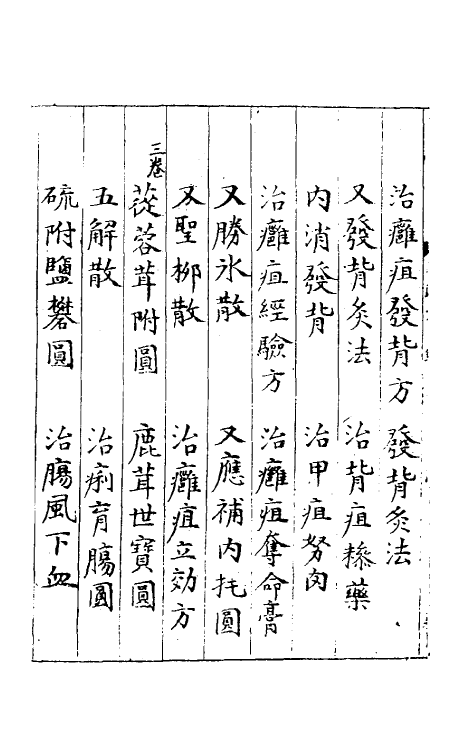 治癰疽發背方　發背灸法
又發背灸法　治背疽糝藥
內消發背　治甲疽努肉
治癰疽經驗方　治癰疽奪命膏
又勝氷散　又應補內托圓
又聖柳散　治癰疽立効方
三卷
蓯蓉茸附圓　鹿茸世寶圓
五解散　治痢育腸圓
硫附鹽礬圓　治腸風下血